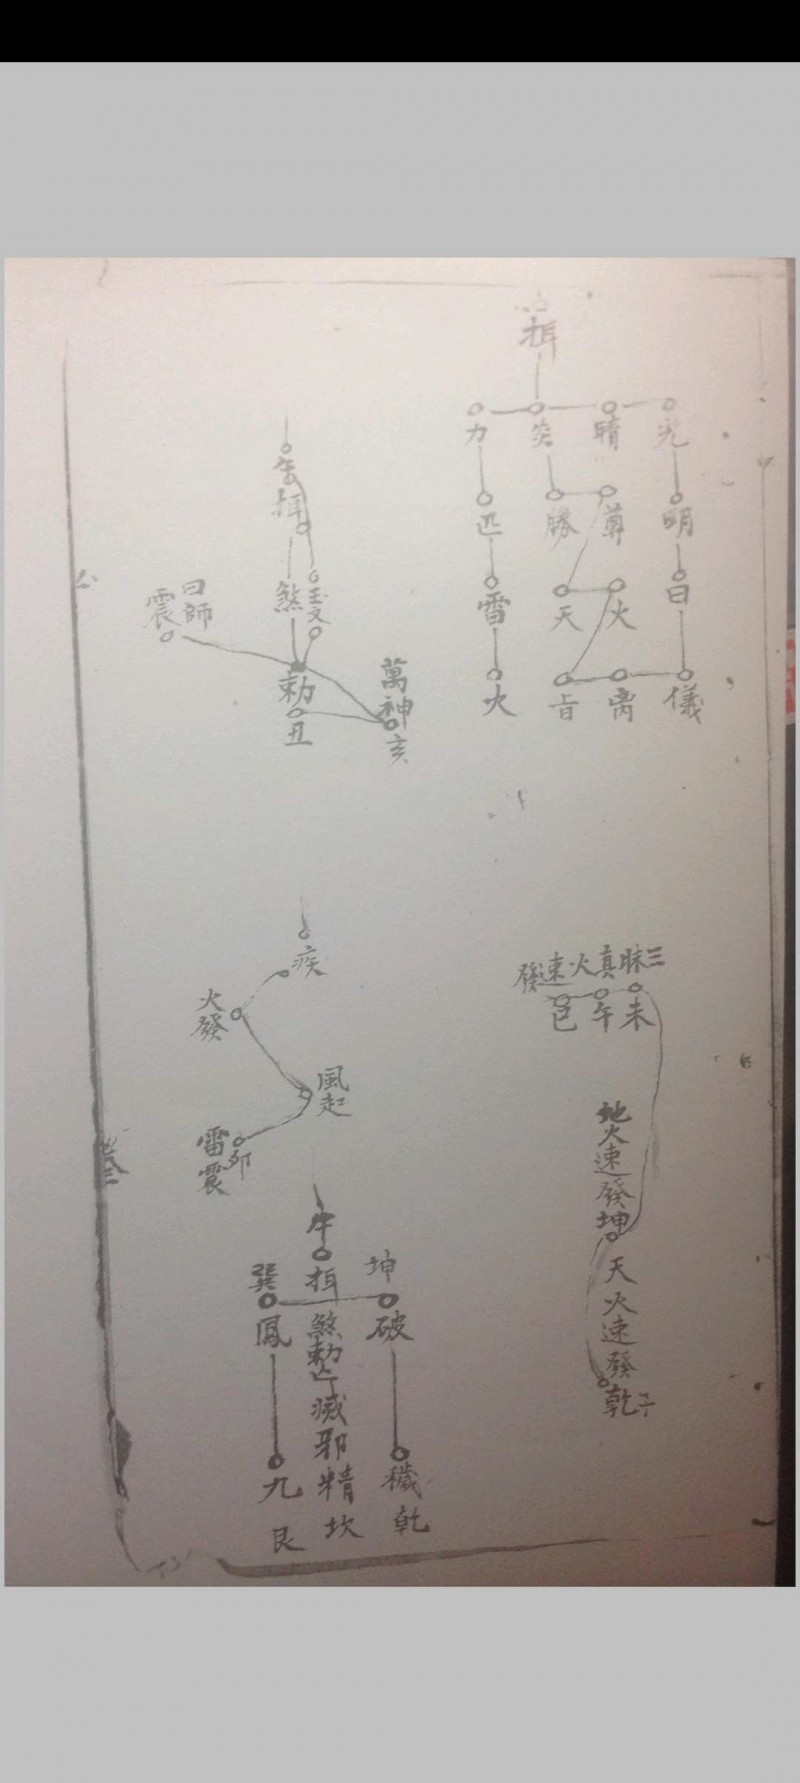 力 炎 晴 光
勝 尊 明
匹
天 火 日
雷
火 旨 离 儀
煞 玉文
曰師
震
勅
丑
萬神
亥
三昧真火速發
未
午
巳
地火速發坤
天火速發乾子
疾
火發
風起
雷震
卯
午
巽 坤
鳳 煞勅 破
滅邪精坎
九 穢
艮 乾